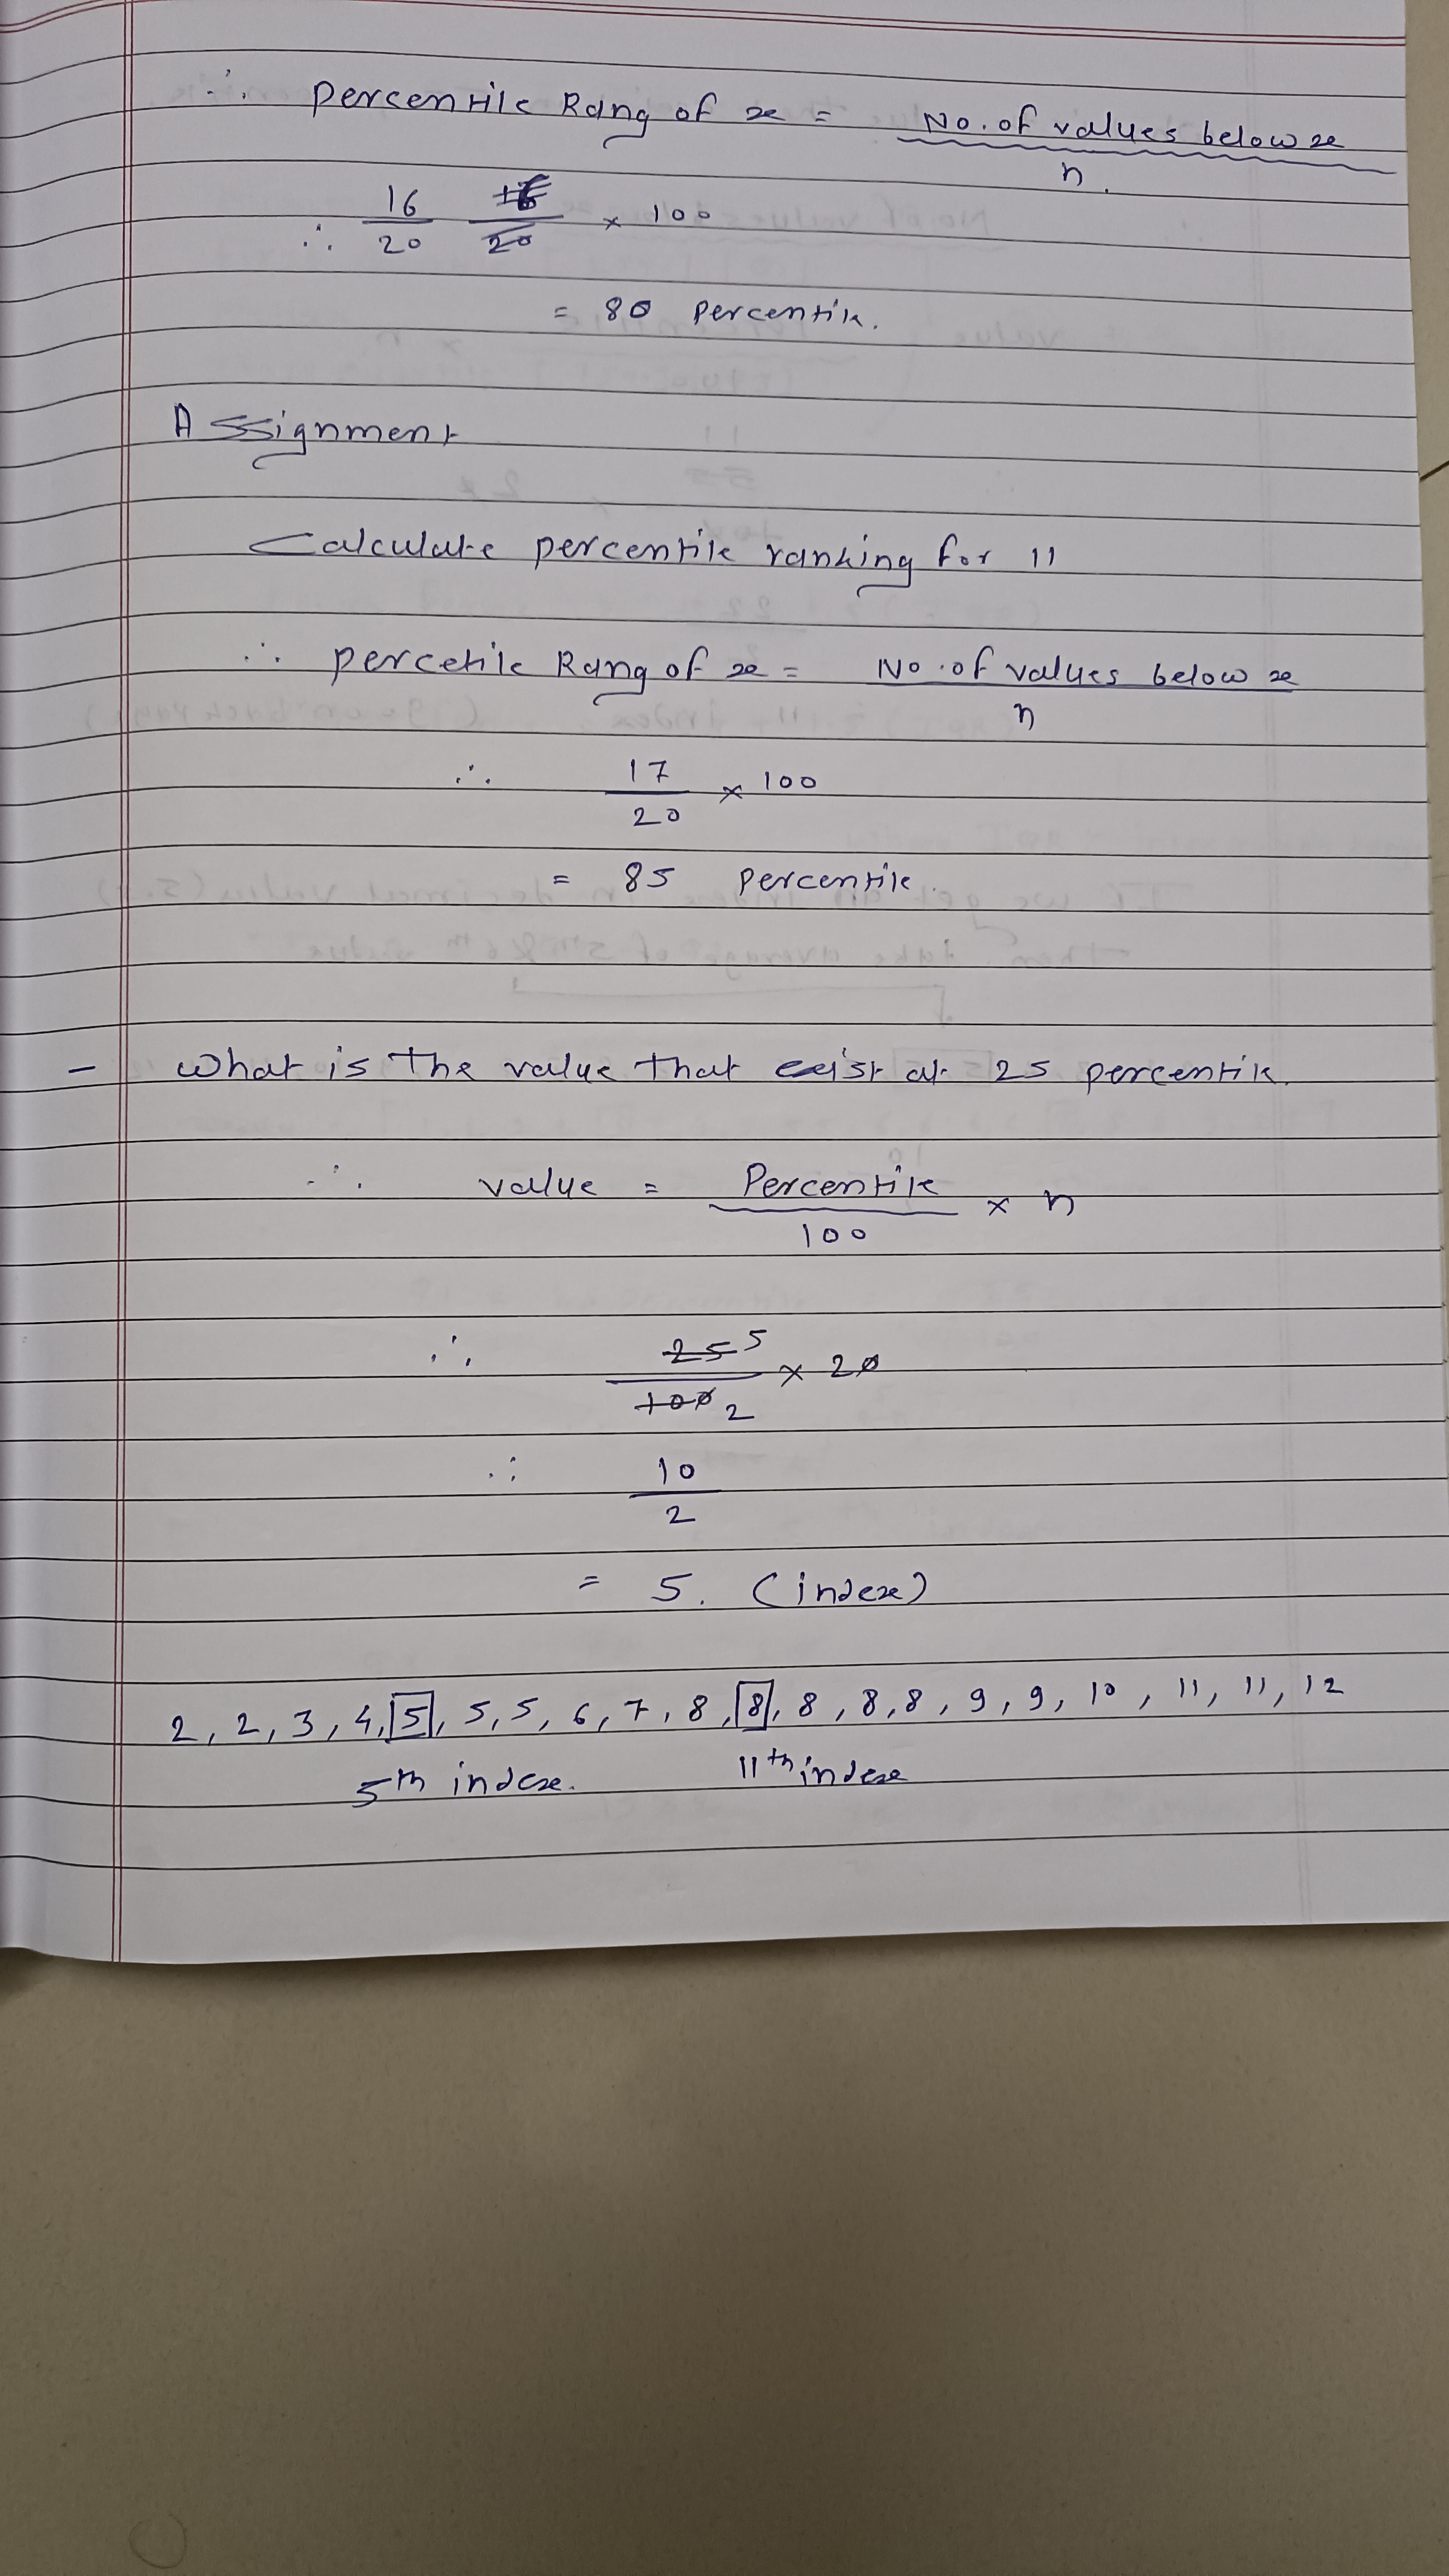 ∴ Percentile Rang of x = No. of values below x
n.
∴ 16/20 16/20 × 100
= 80 Percentile.
Assignment
Calculate percentile ranking for 11
∴ percetile Rang of x = No. of values below x
n
∴ 17/20 × 100
= 85 Percentile.
- What is the value that exist at 25 percentile.
∴ value = Percentile/100 × n
∴ 25 5/100 2 × 20
∴ 10/2
= 5. (index)
2, 2, 3, 4, 5, 5, 5, 6, 7, 8, 8, 8, 8, 8, 9, 9, 10, 11, 11, 12
5th index. 11th index